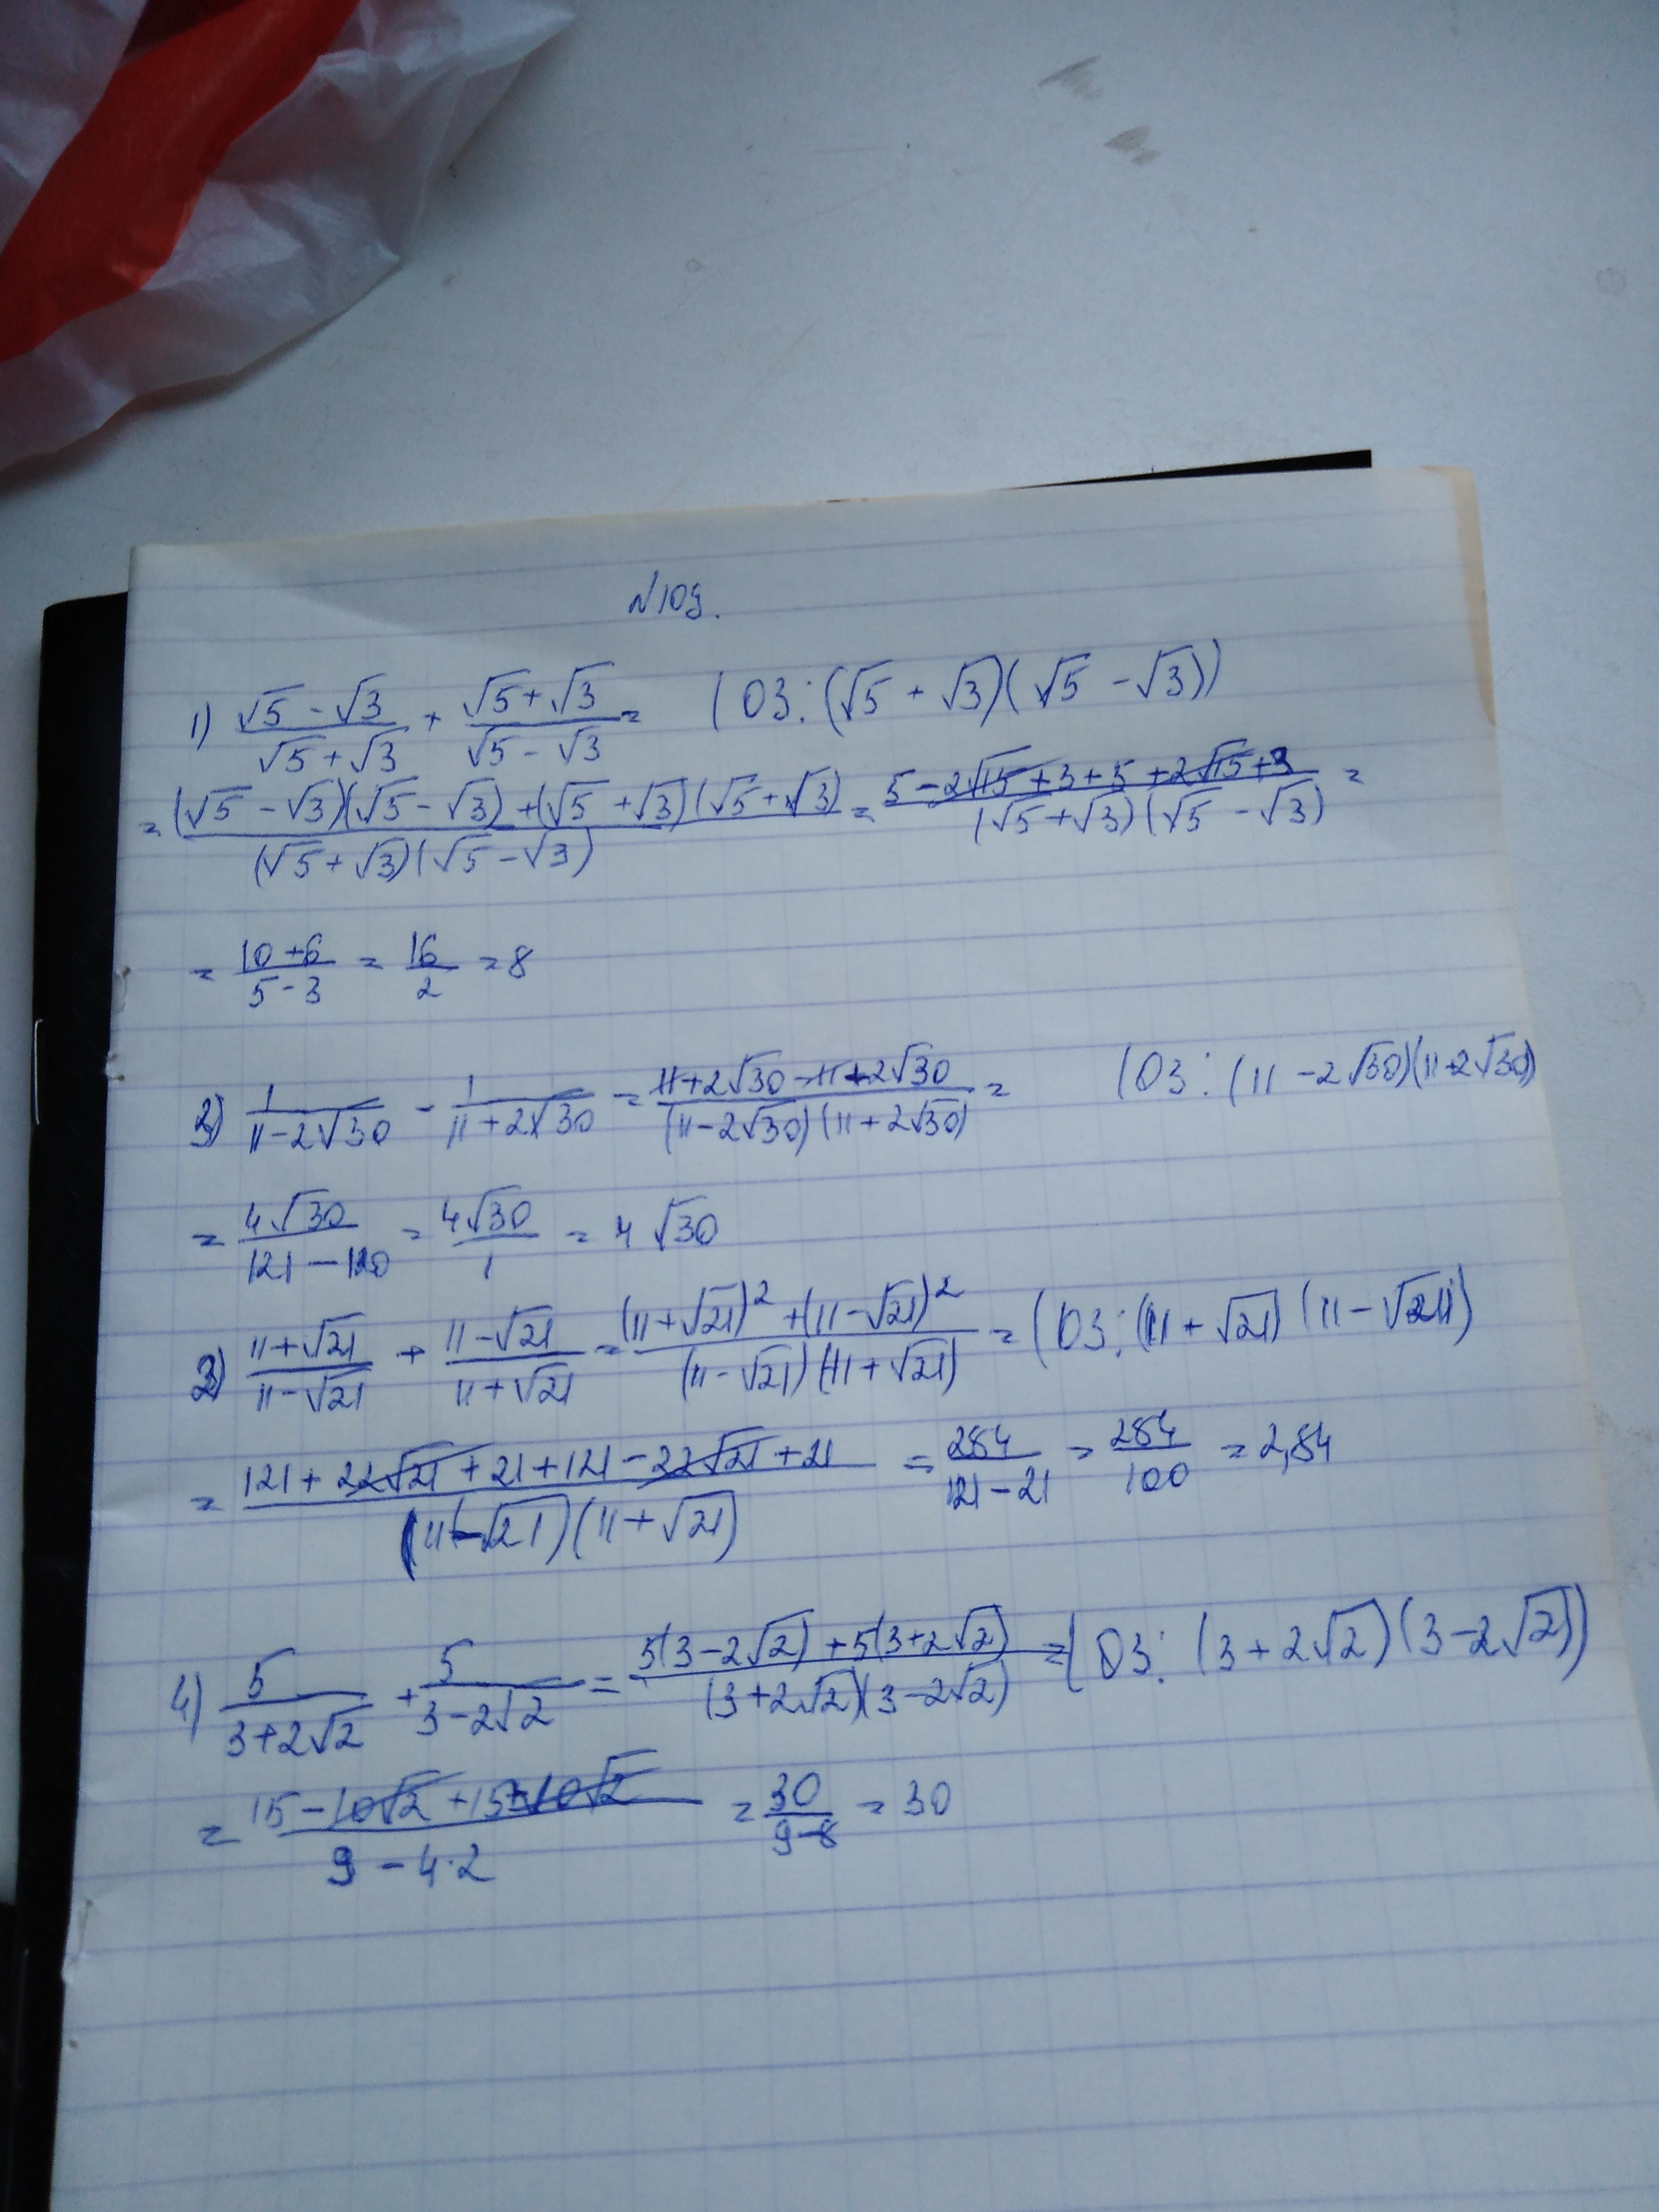 №109.
1) (√5 - √3)/(√5 + √3) + (√5 + √3)/(√5 - √3) = (ОЗ: (√5 + √3)(√5 - √3))
= ((√5 - √3)(√5 - √3) + (√5 + √3)(√5 + √3))/((√5 + √3)(√5 - √3)) = (5 - 2√15 + 3 + 5 + 2√15 + 3)/((√5 + √3)(√5 - √3)) =
= (10 + 6)/(5 - 3) = 16/2 = 8
3) 1/(11 - 2√30) - 1/(11 + 2√30) = (11 + 2√30 - 11 + 2√30)/((11 - 2√30)(11 + 2√30)) = (ОЗ: (11 - 2√30)(11 + 2√30)
= 4√30/(121 - 120) = 4√30/1 = 4√30
2) (11 + √21)/(11 - √21) + (11 - √21)/(11 + √21) = ((11 + √21)² + (11 - √21)²)/((11 - √21)(11 + √21)) = (ОЗ: (11 + √21)(11 - √21)
= (121 + 22√21 + 21 + 121 - 22√21 + 21)/((11 - √21)(11 + √21)) = 284/(121 - 21) = 284/100 = 2,84
4) 5/(3 + 2√2) + 5/(3 - 2√2) = (5(3 - 2√2) + 5(3 + 2√2))/((3 + 2√2)(3 - 2√2)) = (ОЗ: (3 + 2√2)(3 - 2√2))
= (15 - 10√2 + 15 + 10√2)/(9 - 4·2) = 30/(9 - 8) = 30